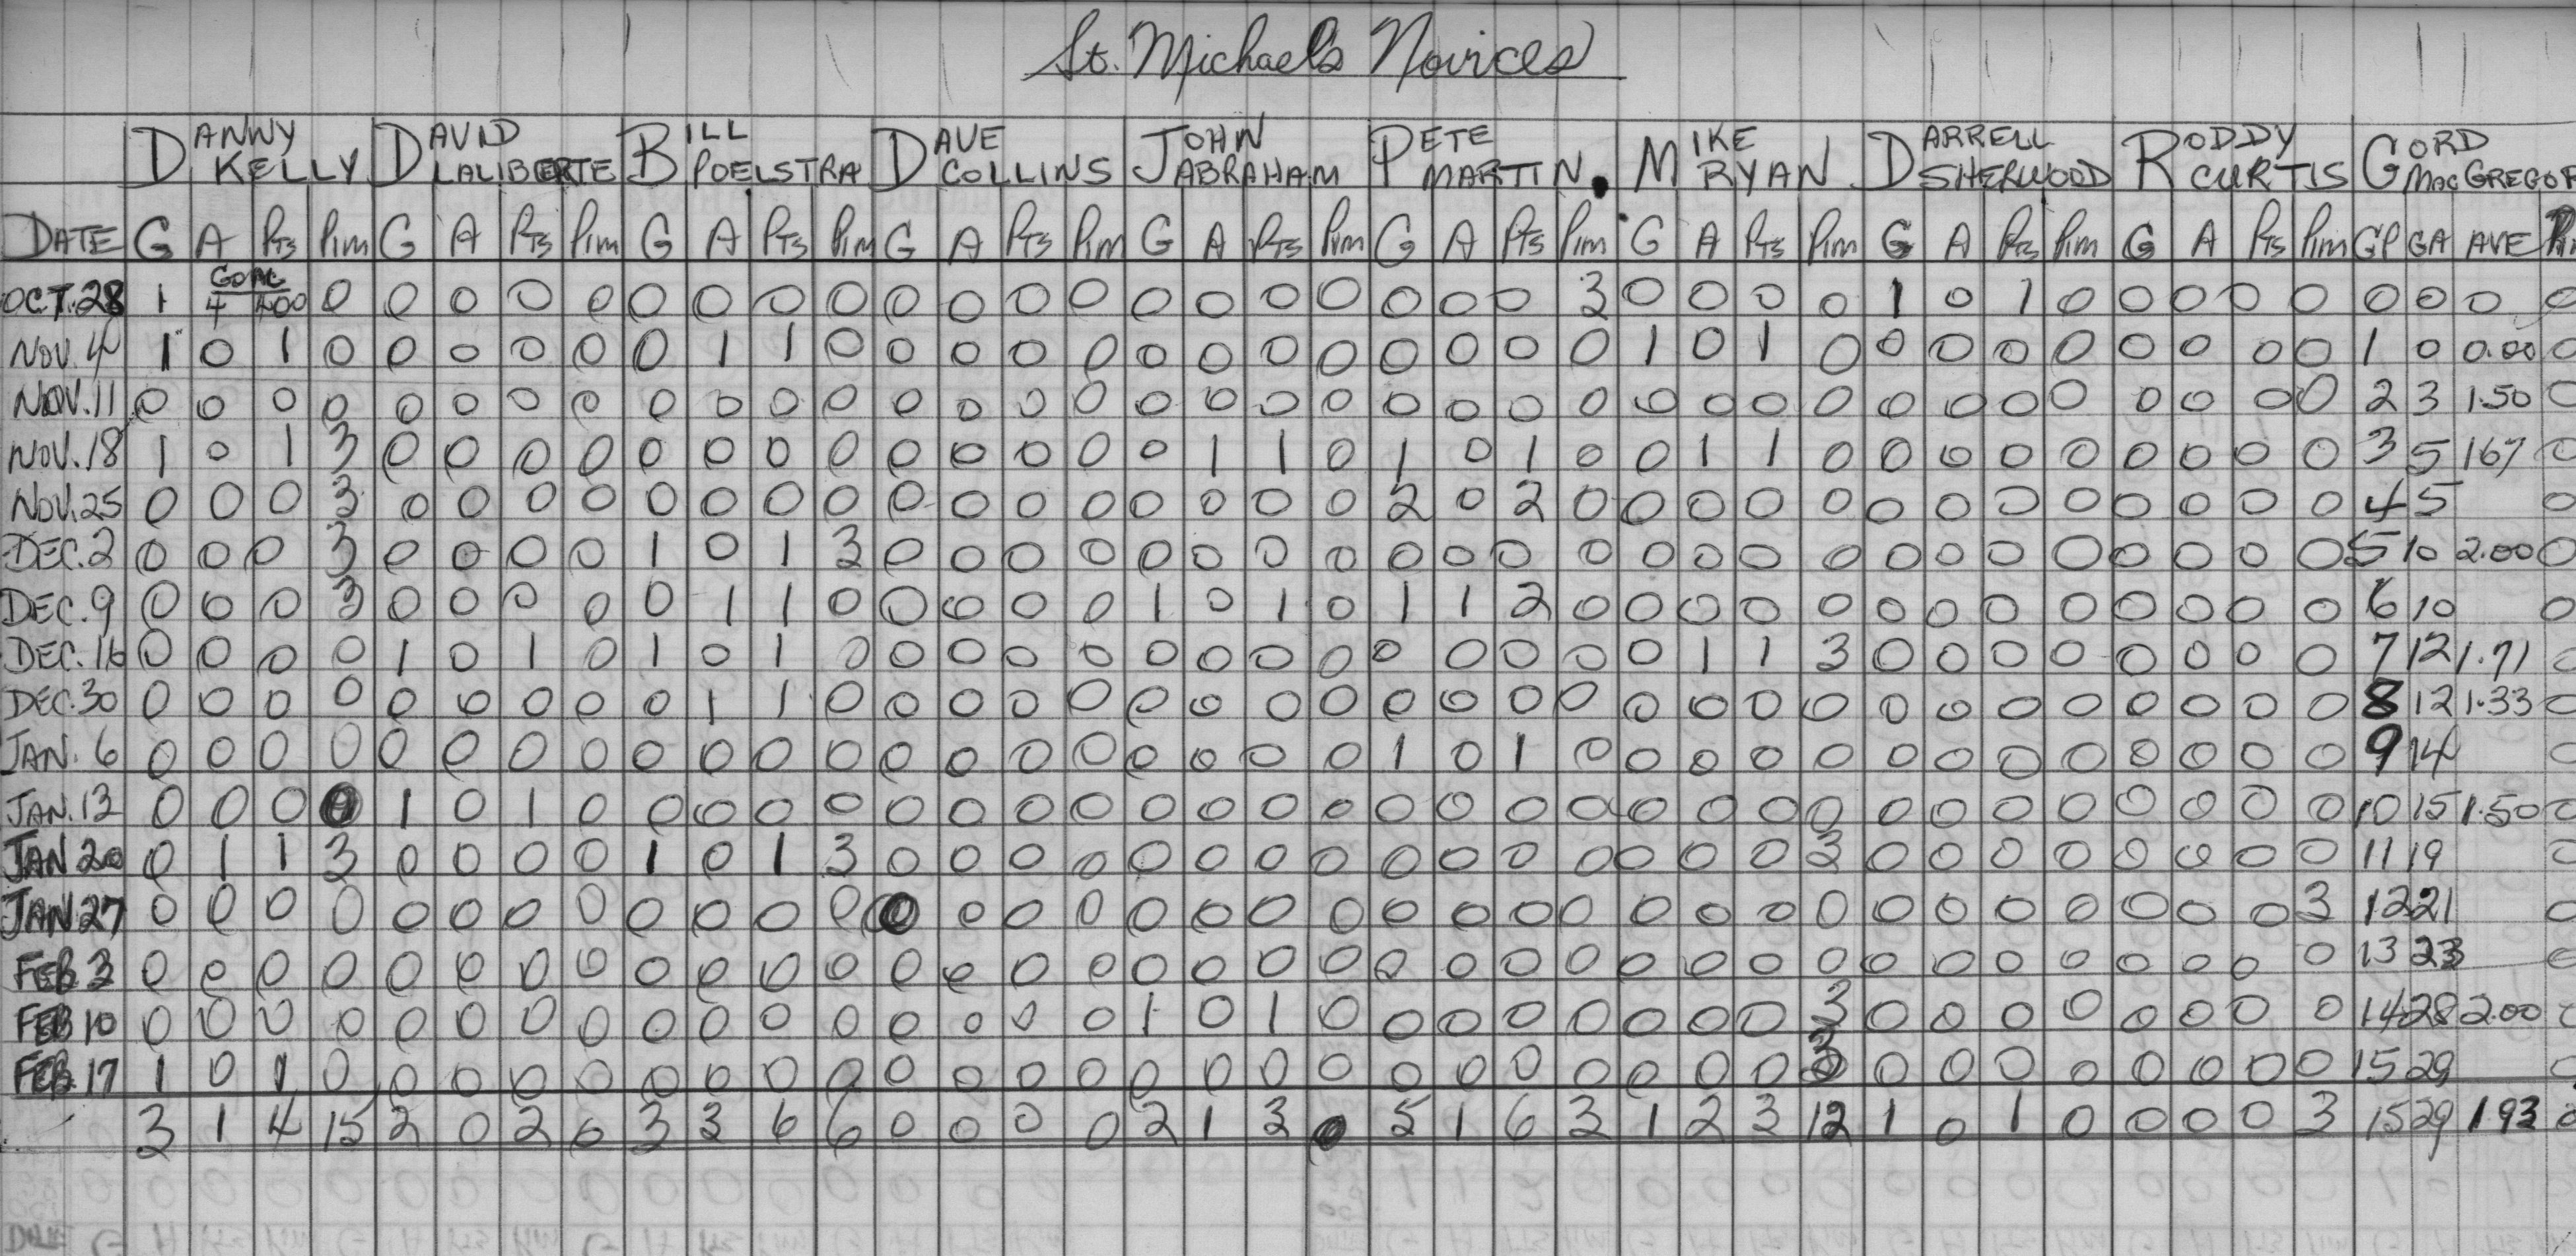 St. Michael's Novices
DANNY KELLY DAVID LALIBERTE BILL POELSTRA DAVE COLLINS JOHN ABRAHAM PETE MARTIN. MIKE RYAN DARRELL SHERWOOD RODDY CURTIS GORD MacGREGOR
DATE G A PTS Pim G A PTS Pim G A PTS Pim G A PTS Pim G A PTS Pim G A PTS Pim G A PTS Pim G A PTS Pim G A PTS Pim GP GA AVE
OCT. 28 1 GOAL 4 4.00 0 0 0 0 0 0 0 0 0 0 0 0 0 0 0 0 0 0 0 0 3 0 0 0 0 1 0 1 0 0 0 0 0 0 0 0 0
NOV. 4 1 0 1 0 0 0 0 0 0 1 1 0 0 0 0 0 0 0 0 0 0 0 0 0 1 0 1 0 0 0 0 0 0 0 0 0 1 0 0.00 0
NOV. 11 0 0 0 0 0 0 0 0 0 0 0 0 0 0 0 0 0 0 0 0 0 0 0 0 0 0 0 0 0 0 0 0 0 0 0 0 2 3 1.50 0
NOV. 18 1 0 1 3 0 0 0 0 0 0 0 0 0 0 0 0 0 1 1 0 1 0 1 0 0 1 1 0 0 0 0 0 0 0 0 0 3 5 167 0
NOV. 25 0 0 0 3 0 0 0 0 0 0 0 0 0 0 0 0 0 0 0 0 2 0 2 0 0 0 0 0 0 0 0 0 0 0 0 0 4 5 0
DEC. 2 0 0 0 3 0 0 0 0 1 0 1 3 0 0 0 0 0 0 0 0 0 0 0 0 0 0 0 0 0 0 0 0 0 0 0 0 5 10 2.00 0
DEC. 9 0 0 0 3 0 0 0 0 0 1 1 0 0 0 0 0 1 0 1 0 1 1 2 0 0 0 0 0 0 0 0 0 0 0 0 0 6 10 0
DEC. 16 0 0 0 0 1 0 1 0 1 0 1 0 0 0 0 0 0 0 0 0 0 0 0 0 0 1 1 3 0 0 0 0 0 0 0 0 7 12 1.71 0
DEC. 30 0 0 0 0 0 0 0 0 0 1 1 0 0 0 0 0 0 0 0 0 0 0 0 0 0 0 0 0 0 0 0 0 0 0 0 0 8 12 1.33 0
JAN. 6 0 0 0 0 0 0 0 0 0 0 0 0 0 0 0 0 0 0 0 0 1 0 1 0 0 0 0 0 0 0 0 0 0 0 0 0 9 14 0
JAN. 13 0 0 0 0 1 0 1 0 0 0 0 0 0 0 0 0 0 0 0 0 0 0 0 0 0 0 0 0 0 0 0 0 0 0 0 0 10 15 1.50 0
JAN 20 0 1 1 3 0 0 0 0 1 0 1 3 0 0 0 0 0 0 0 0 0 0 0 0 0 0 0 3 0 0 0 0 0 0 0 0 11 19 0
JAN 27 0 0 0 0 0 0 0 0 0 0 0 0 0 0 0 0 0 0 0 0 0 0 0 0 0 0 0 0 0 0 0 0 0 0 0 3 12 21 0
FEB 3 0 0 0 0 0 0 0 0 0 0 0 0 0 0 0 0 0 0 0 0 0 0 0 0 0 0 0 0 0 0 0 0 0 0 0 0 13 23 0
FEB 10 0 0 0 0 0 0 0 0 0 0 0 0 0 0 0 0 1 0 1 0 0 0 0 0 0 0 0 3 0 0 0 0 0 0 0 0 14 28 2.00 0
FEB. 17 1 0 1 0 0 0 0 0 0 0 0 0 0 0 0 0 0 0 0 0 0 0 0 0 0 0 0 3 0 0 0 0 0 0 0 0 15 29 0
3 1 4 15 2 0 2 0 3 3 6 6 0 0 0 0 2 1 3 0 5 1 6 3 1 2 3 12 1 0 1 0 0 0 0 3 15 29 1.93 0